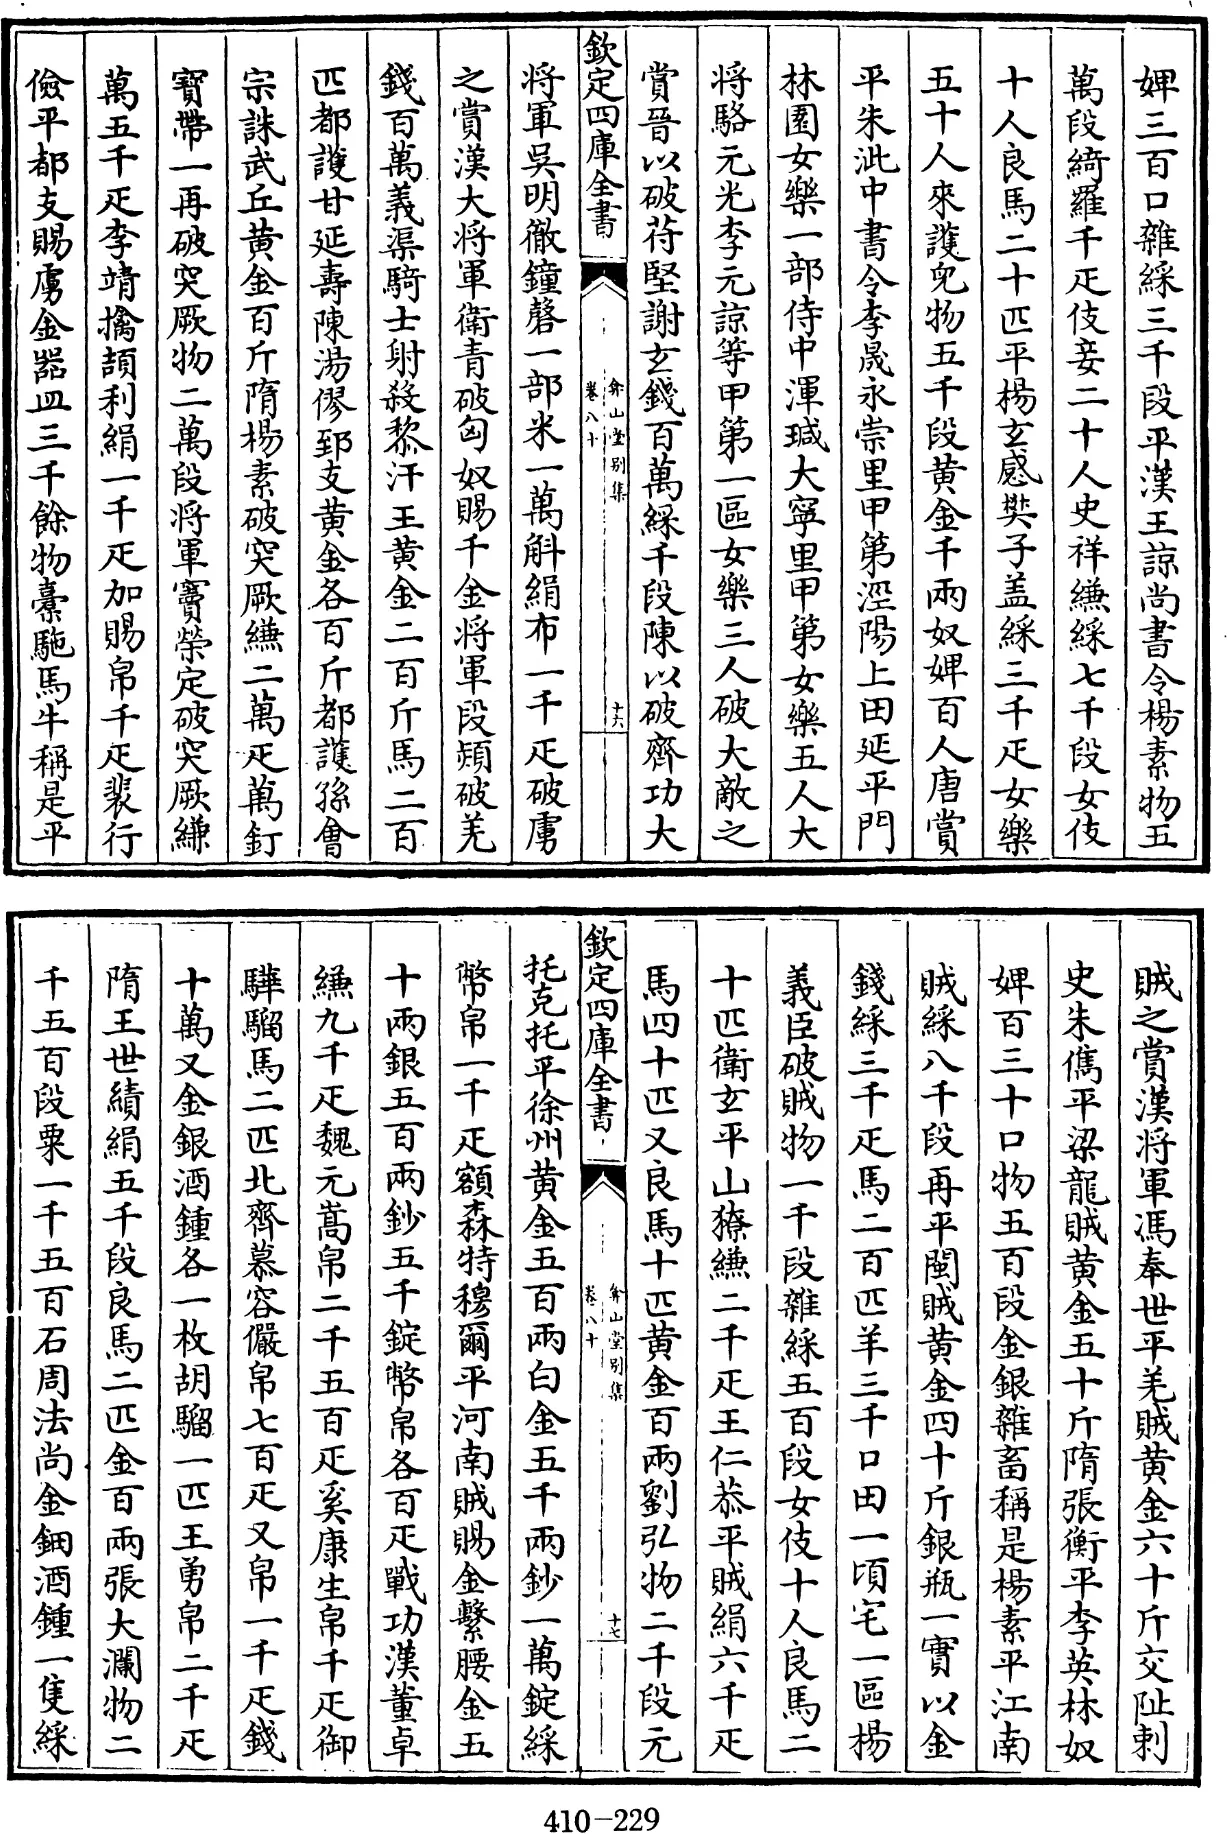 婢三百口雜綵三千段平漢王諒尚書令楊素物五
萬段綺羅千疋伎妾二十人史祥縑綵七千段女伎
十人良馬二十匹平楊玄感樊子盖綵三千疋女樂
五十人來護兒物五千段黄金千兩奴婢百人唐賞
平朱泚中書令李晟永崇里甲第涇陽上田延平門
林園女樂一部侍中渾瑊大寧里甲第女樂五人大
将駱元光李元諒等甲第一區女樂三人破大敵之
賞晉以破苻堅謝玄錢百萬綵千段陳以破齊功大
欽定四庫全書
弇山堂别集
卷八十
十六
将軍吳明徹鐘磬一部米一萬斛絹布一千疋破虜
之賞漢大将軍衛青破匈奴賜千金将軍段熲破羌
錢百萬義渠騎士射殺黎汗王黄金二百斤馬二百
匹都護甘延壽陳湯僇郅支黄金各百斤都護孫會
宗誅武丘黄金百斤隋楊素破突厥縑二萬疋萬釘
寳帶一再破突厥物二萬段将軍竇榮定破突厥縑
萬五千疋李靖擒頡利絹一千疋加賜帛千疋裴行
儉平都支賜虜金器皿三千餘物橐駞馬牛稱是平
賊之賞漢将軍馮奉世平羌賊黄金六十斤交阯刺
史朱儁平梁龍賊黄金五十斤隋張衡平李英林奴
婢百三十口物五百段金銀雜畜稱是楊素平江南
賊綵八千段再平閩賊黄金四十斤銀瓶一實以金
錢綵三千疋馬二百匹羊三千口田一頃宅一區楊
義臣破賊物一千段雜綵五百段女伎十人良馬二
十匹衛玄平山獠縑二千疋王仁恭平賊絹六千疋
馬四十匹又良馬十匹黄金百兩劉弘物二千段元
欽定四庫全書
弇山堂别集
卷八十
十七
托克托平徐州黄金五百兩白金五千兩鈔一萬錠綵
幣帛一千疋額森特穆爾平河南賊賜金繫腰金五
十兩銀五百兩鈔五千錠幣帛各百疋戰功漢董卓
縑九千疋魏元嵩帛二千五百疋奚康生帛千疋御
驊騮馬二匹北齊慕容儼帛七百疋又帛一千疋錢
十萬又金銀酒鍾各一枚胡騮一匹王勇帛二千疋
隋王世績絹五千段良馬二匹金百兩張大淵物二
千五百段粟一千五百石周法尚金鈿酒鍾一隻綵
410-229